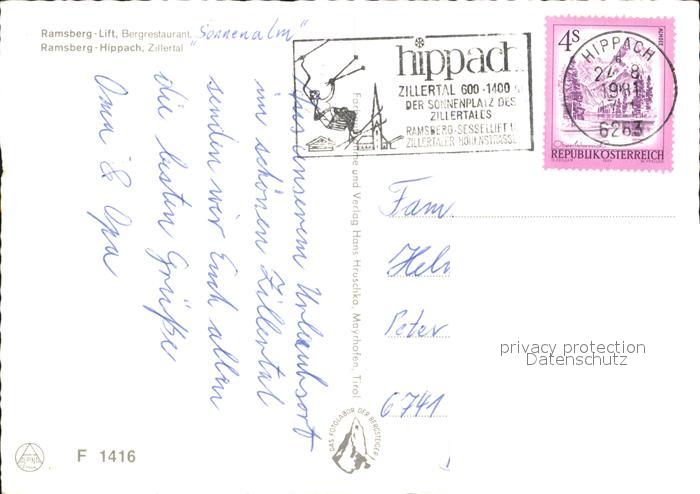 Ramsberg-Lift, Bergrestaurant, "Sonnenalm"
Ramsberg-Hippach, Zillertal
Aus unserem Urlaubsort
im schönen Zillertal
senden wir Euch allen
die besten Grüße
Oma & Opa
hippach
ZILLERTAL 600-1400
DER SONNENPLATZ DES
ZILLERTALES
RAMSBERG-SESSELLIFT
ZILLERTALER HÖHENSTRASSE
4S
ALMSEE
REPUBLIK ÖSTERREICH
HIPPACH
8
1981
6263
und Verlag Hans Hruschka, Mayrhofen, Tirol
Fam.
Hel
Peter
6741
privacy protection
Datenschutz
DAS FOTOLABOR DER BERGSTEIGER
F 1416